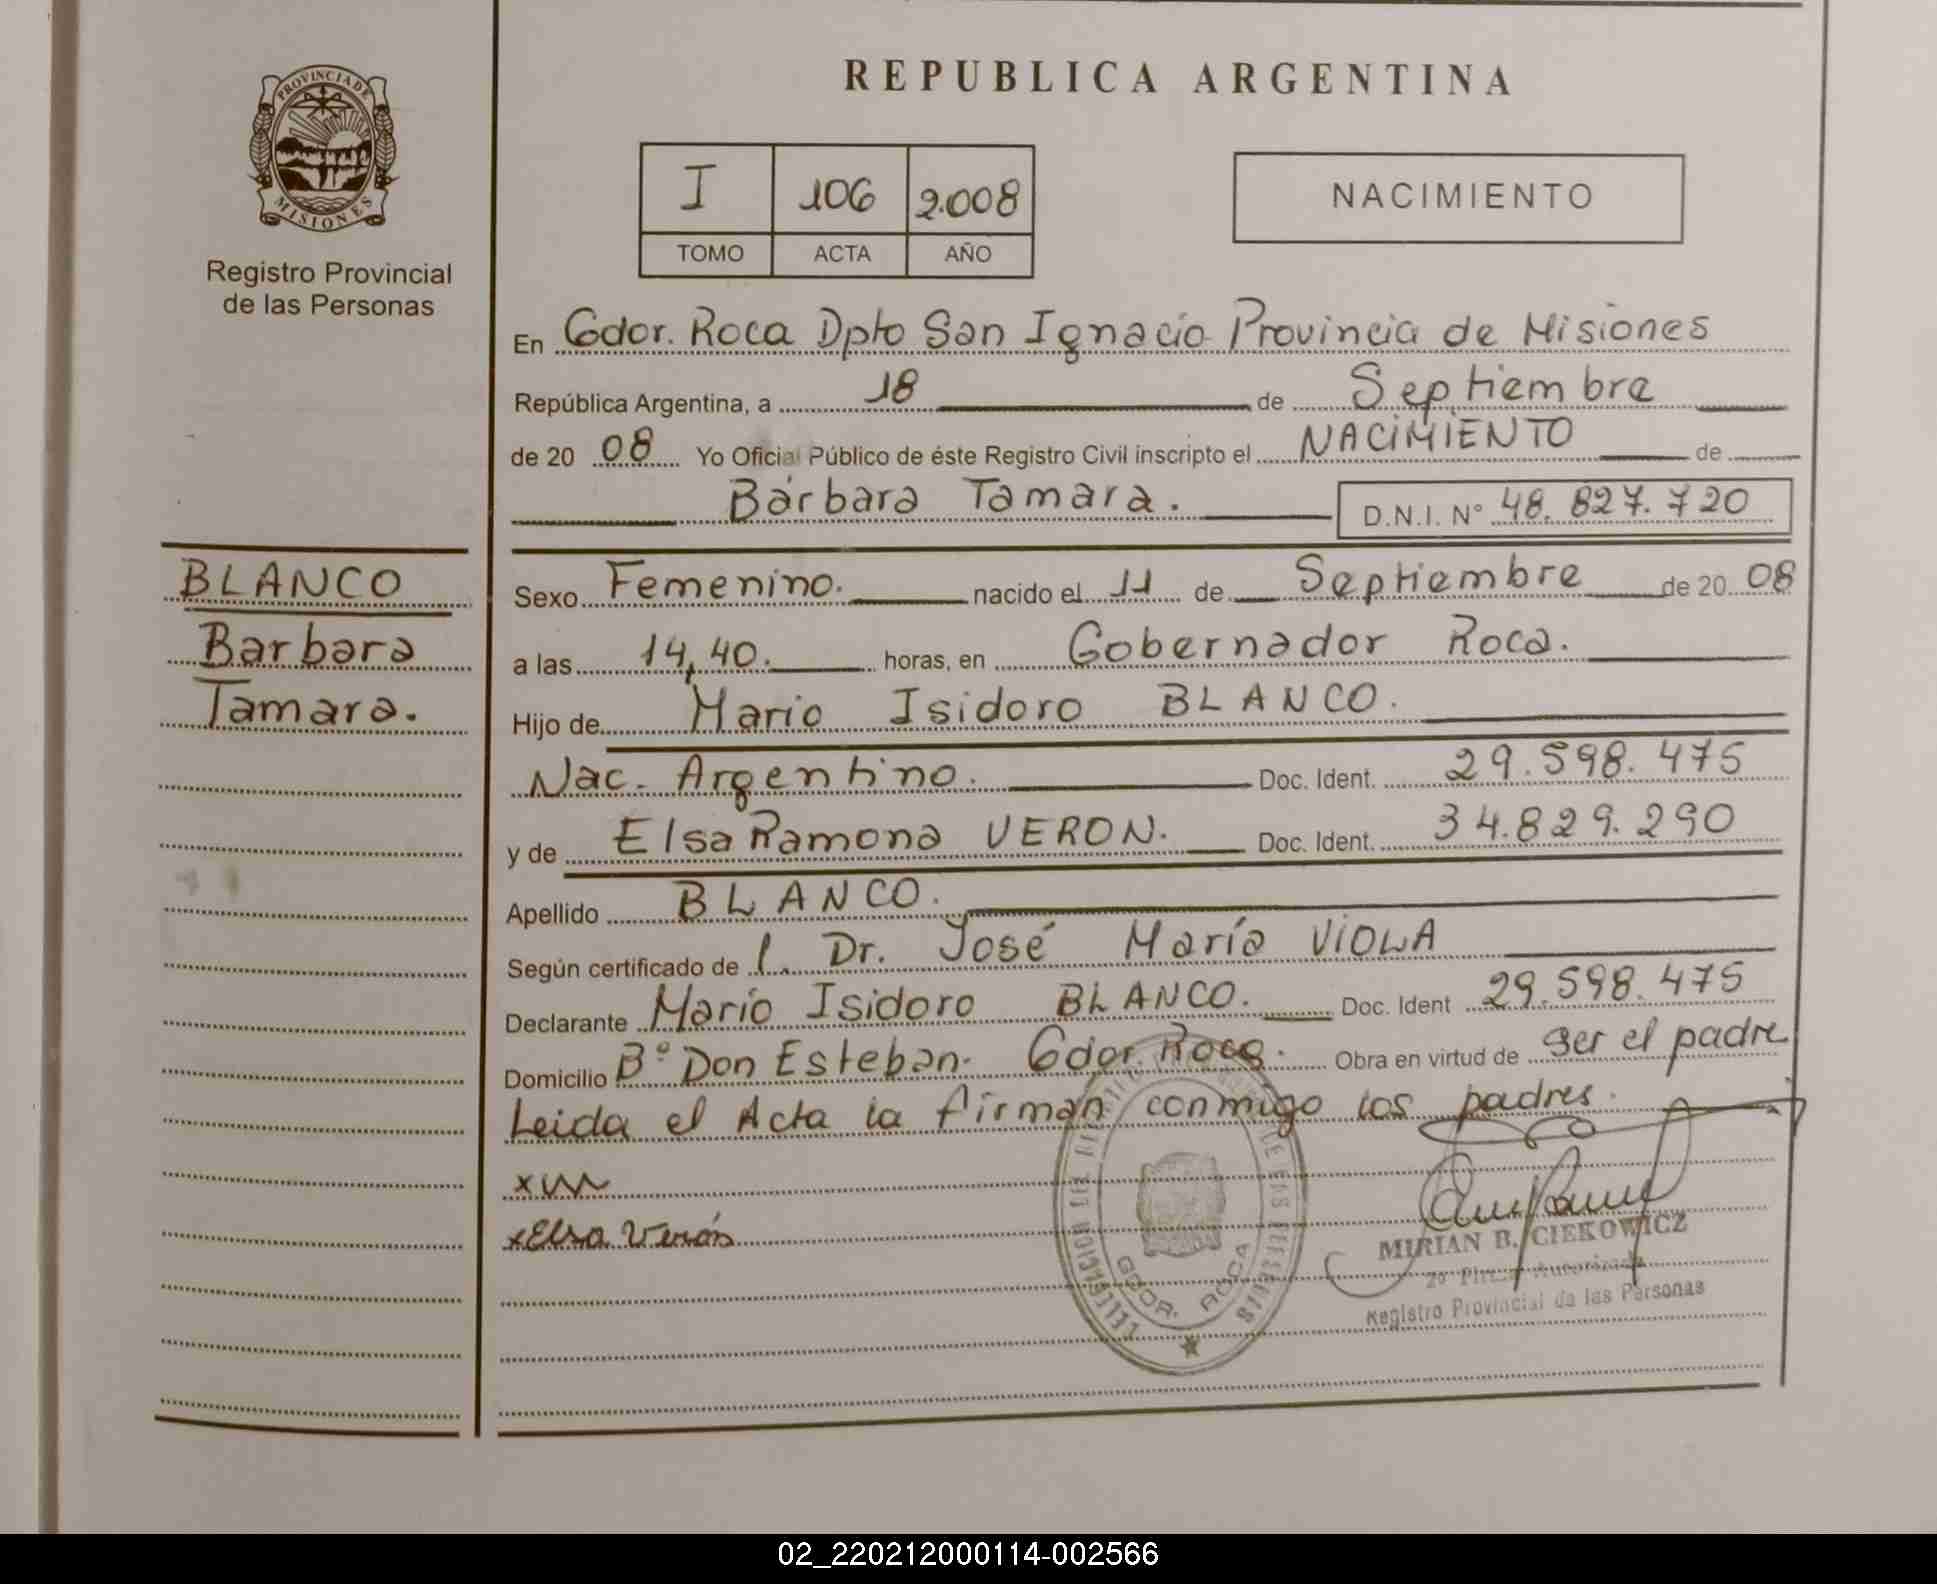 REPUBLICA ARGENTINA
PROVINCIA DE
MISIONES
Registro Provincial
de las Personas
I 106 2.008
TOMO ACTA AÑO
NACIMIENTO
En Gdor. Roca Dpto San Ignacio Provincia de Misiones
República Argentina, a 18 de Septiembre
de 20 08 Yo Oficial Público de éste Registro Civil inscripto el NACIMIENTO de
Bárbara Tamara. D.N.I. N° 48.827.720
BLANCO
Barbara
Tamara.
Sexo Femenino. nacido el 11 de Septiembre de 20 08
a las 14,40. horas, en Gobernador Roca.
Hijo de Mario Isidoro BLANCO.
Nac. Argentino. Doc. Ident. 29.598.475
y de Elsa Ramona VERON. Doc. Ident. 34.829.290
Apellido BLANCO.
Según certificado de l. Dr. José María VIOLA
Declarante Mario Isidoro BLANCO. Doc. Ident 29.598.475
Domicilio B° Don Esteban. Gdor. Roca. Obra en virtud de ser el padre
Leida el Acta la firman conmigo los padres.
x
xElsa Verón
GDOR. ROCA
MIRIAN B. CIEKOWICZ
2° Autorizada
Registro Provincial de las Personas
02_220212000114-002566